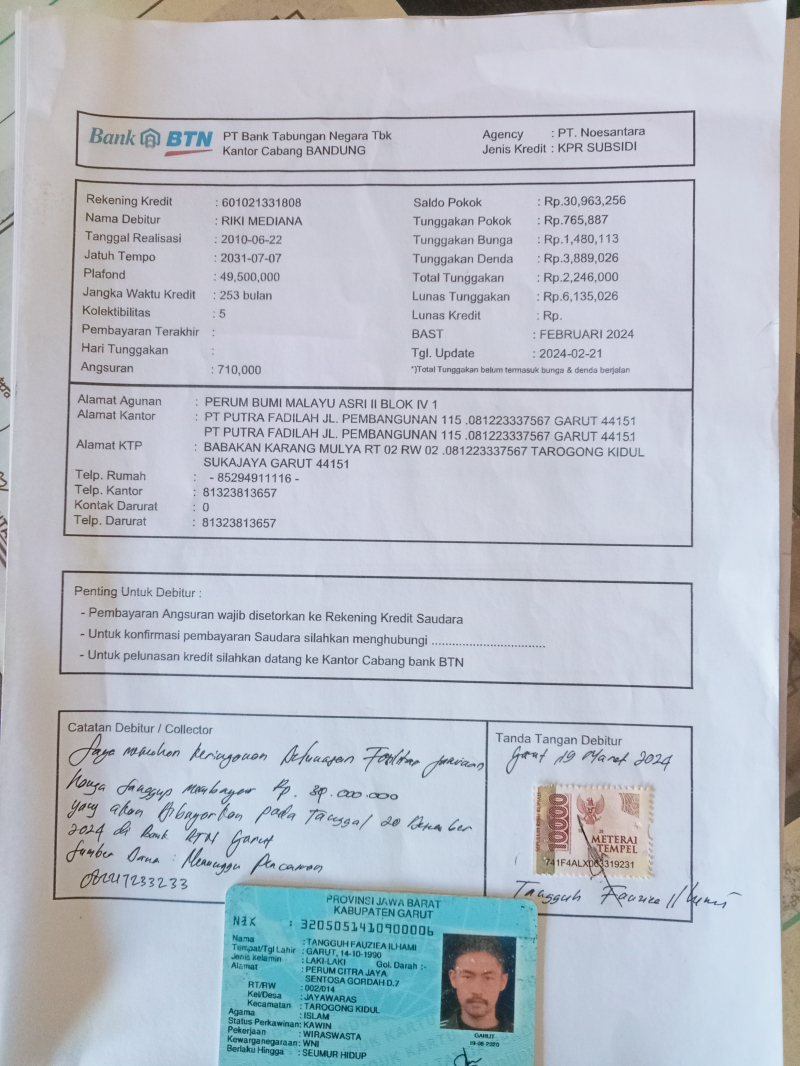 Bank BTN
PT Bank Tabungan Negara Tbk
Kantor Cabang BANDUNG
Agency : PT. Noesantara
Jenis Kredit : KPR SUBSIDI
Rekening Kredit : 601021331808
Nama Debitur : RIKI MEDIANA
Tanggal Realisasi : 2010-06-22
Jatuh Tempo : 2031-07-07
Plafond : 49,500,000
Jangka Waktu Kredit : 253 bulan
Kolektibilitas : 5
Pembayaran Terakhir :
Hari Tunggakan :
Angsuran : 710,000
Saldo Pokok : Rp.30,963,256
Tunggakan Pokok : Rp.765,887
Tunggakan Bunga : Rp.1,480,113
Tunggakan Denda : Rp.3,889,026
Total Tunggakan : Rp.2,246,000
Lunas Tunggakan : Rp.6,135,026
Lunas Kredit : Rp.
BAST : FEBRUARI 2024
Tgl. Update : 2024-02-21
*)Total Tunggakan belum termasuk bunga & denda berjalan
Alamat Agunan : PERUM BUMI MALAYU ASRI II BLOK IV 1
Alamat Kantor : PT PUTRA FADILAH JL. PEMBANGUNAN 115 .081223337567 GARUT 44151
PT PUTRA FADILAH JL. PEMBANGUNAN 115 .081223337567 GARUT 44151
Alamat KTP : BABAKAN KARANG MULYA RT 02 RW 02 .081223337567 TAROGONG KIDUL
SUKAJAYA GARUT 44151
Telp. Rumah : - 85294911116 -
Telp. Kantor : 81323813657
Kontak Darurat : 0
Telp. Darurat : 81323813657
Penting Untuk Debitur :
- Pembayaran Angsuran wajib disetorkan ke Rekening Kredit Saudara
- Untuk konfirmasi pembayaran Saudara silahkan menghubungi ................................
- Untuk pelunasan kredit silahkan datang ke Kantor Cabang bank BTN
Catatan Debitur / Collector
Saya memohon keringanan Pelunasan
Hanya Sanggup membayar Rp. 30.000.000
yang akan dibayarkan pada tanggal 20 Desember
2024 di Bank BTN Garut
Sumber Dana : Menunggu Pencairan
Tanda Tangan Debitur
Garut 19 Maret 2024
10000
METERAI
TEMPEL
741F4ALX063319231
Tangguh Fauziea Ilhami
PROVINSI JAWA BARAT
KABUPATEN GARUT
NIK : 3205051410900006
Nama : TANGGUH FAUZIEA ILHAMI
Tempat/Tgl Lahir : GARUT, 14-10-1990
Jenis kelamin : LAKI-LAKI Gol. Darah :-
Alamat : PERUM CITRA JAYA
SENTOSA GORDAH D.7
RT/RW : 002/014
Kel/Desa : JAYAWARAS
Kecamatan : TAROGONG KIDUL
Agama : ISLAM
Status Perkawinan: KAWIN
Pekerjaan : WIRASWASTA
Kewarganegaraan: WNI
Berlaku Hingga : SEUMUR HIDUP
GARUT